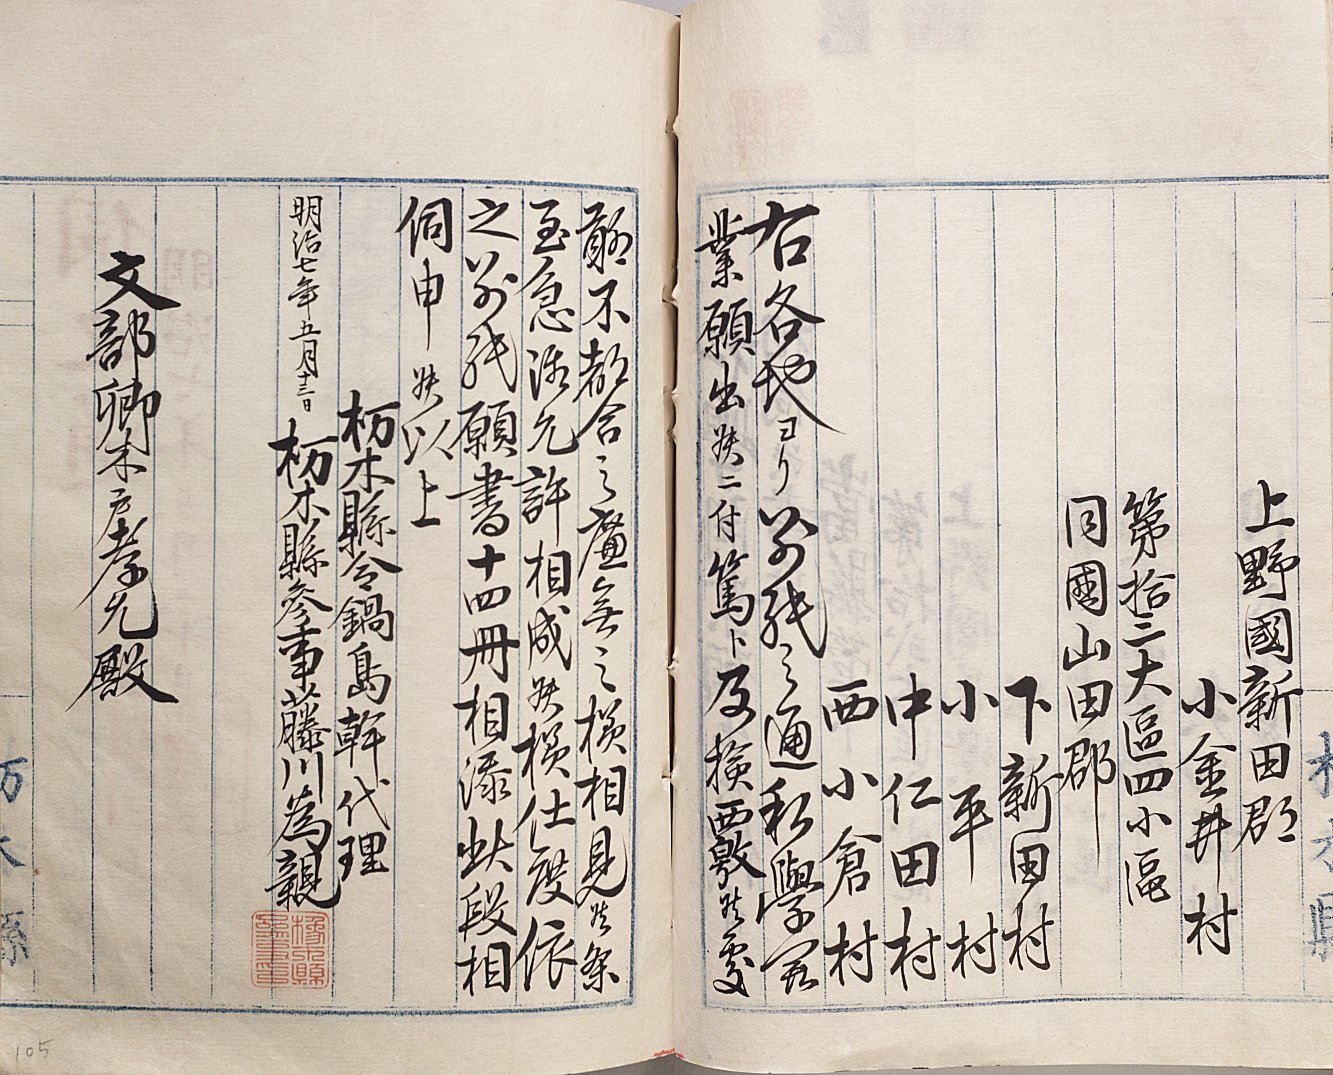 上野國新田郡
小金井村
第拾二大區四小區
同國山田郡
下新田村
小平村
中仁田村
西小倉村
右各地ヨリ別紙之通私學開
業願出候ニ付篤ト及検覈候處
聊不都合之廉無之様相見候条
至急御允許相成候様仕度依
之別紙願書十四冊相添此段相
伺申候以上
栃木縣令鍋島幹代理
明治七年五月十三日 栃木縣参事藤川為親
文部卿木戸孝允殿
栃木縣
105